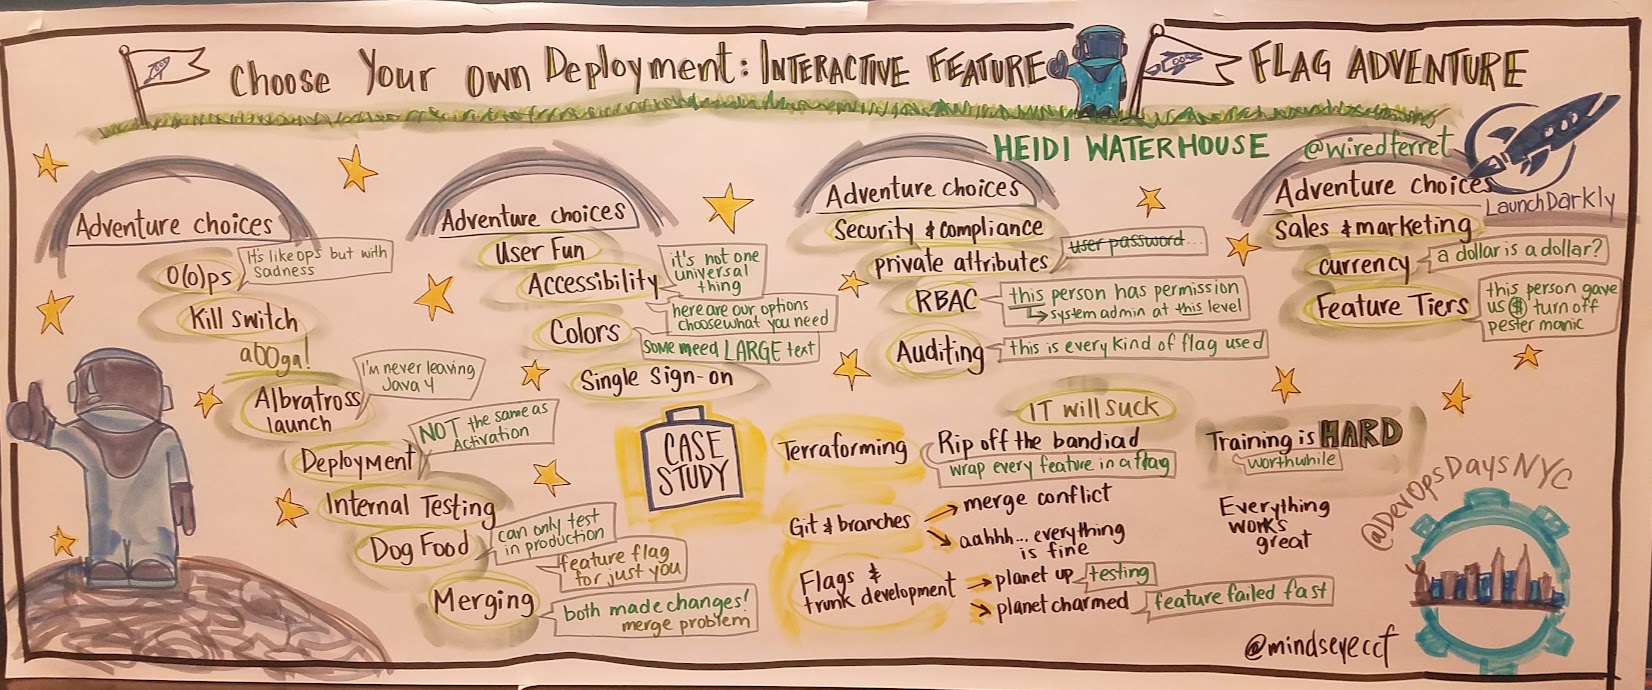 Choose Your Own Deployment: INTERACTIVE FEATURE FLAG ADVENTURE
HEIDI WATERHOUSE @wiredferret
LaunchDarkly
Adventure choices
O(o)ps
It's like ops but with
sadness
Kill switch
aboga!
Albratross
launch
I'm never leaving
Java 4
Deployment
NOT the same as
Activation
Internal Testing
Dog Food
can only test
in production
feature flag
for just you
Merging
both made changes!
merge problem
Adventure choices
User Fun
Accessibility
it's not one
universal
thing
here are our options
choose what you need
Colors
some need LARGE text
Single Sign-on
Adventure choices
Security & compliance
private attributes
user password...
RBAC
this person has permission
system admin at this level
Auditing
this is every kind of flag used
Adventure choices
Sales & marketing
currency
a dollar is a dollar?
Feature Tiers
this person gave
us $ turn off
pester manic
CASE
STUDY
IT will suck
Terraforming
Rip off the bandiad
wrap every feature in a flag
Training is HARD
worthwhile
Git & branches
merge conflict
aahhh... everything
is fine
Everything
works
great
Flags &
trunk development
planet up
testing
planet charmed
feature failed fast
@DevOpsDaysNYC
@mindseyeccf